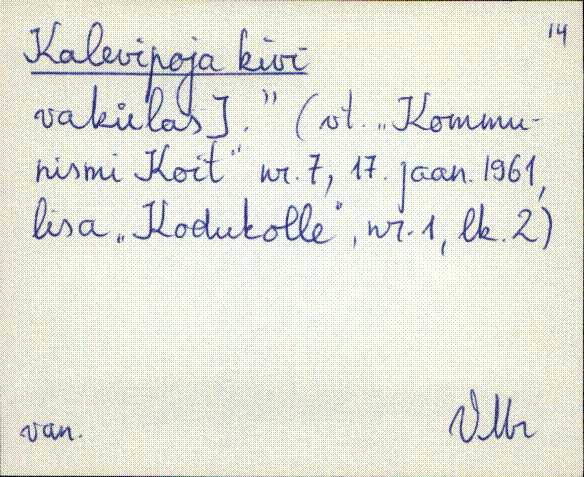 14
Kalevipoja kivi
vakülas]." (vt. „Kommu-
nismi Koit" nr. 7, 17. jaan. 1961,
lisa „Kodukolle", nr. 1, lk. 2)
van.